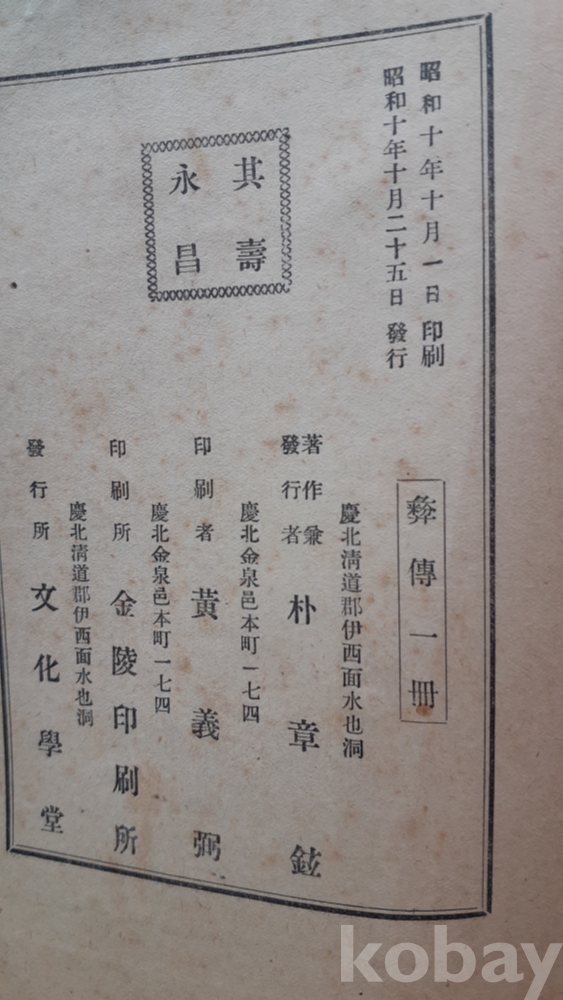 昭和十年十月一日印刷
昭和十年十月二十五日發行
其壽
永昌
彜傳一冊
慶北淸道郡伊西面水也洞
著作兼
發行者
朴章鉉
慶北金泉邑本町一七四
印刷者 黃義弼
慶北金泉邑本町一七四
印刷所 金陵印刷所
慶北淸道郡伊西面水也洞
發行所 文化學堂
kobay